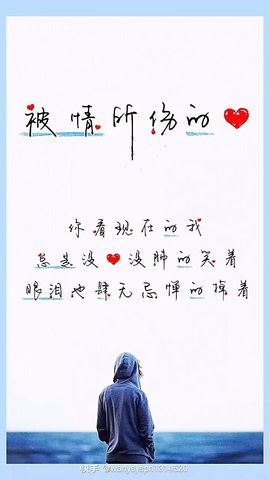 被情所伤的❤
你看现在的我
总是没❤没肺的笑着
眼泪也肆无忌惮的掉着
快手 @wanysyspn1314520